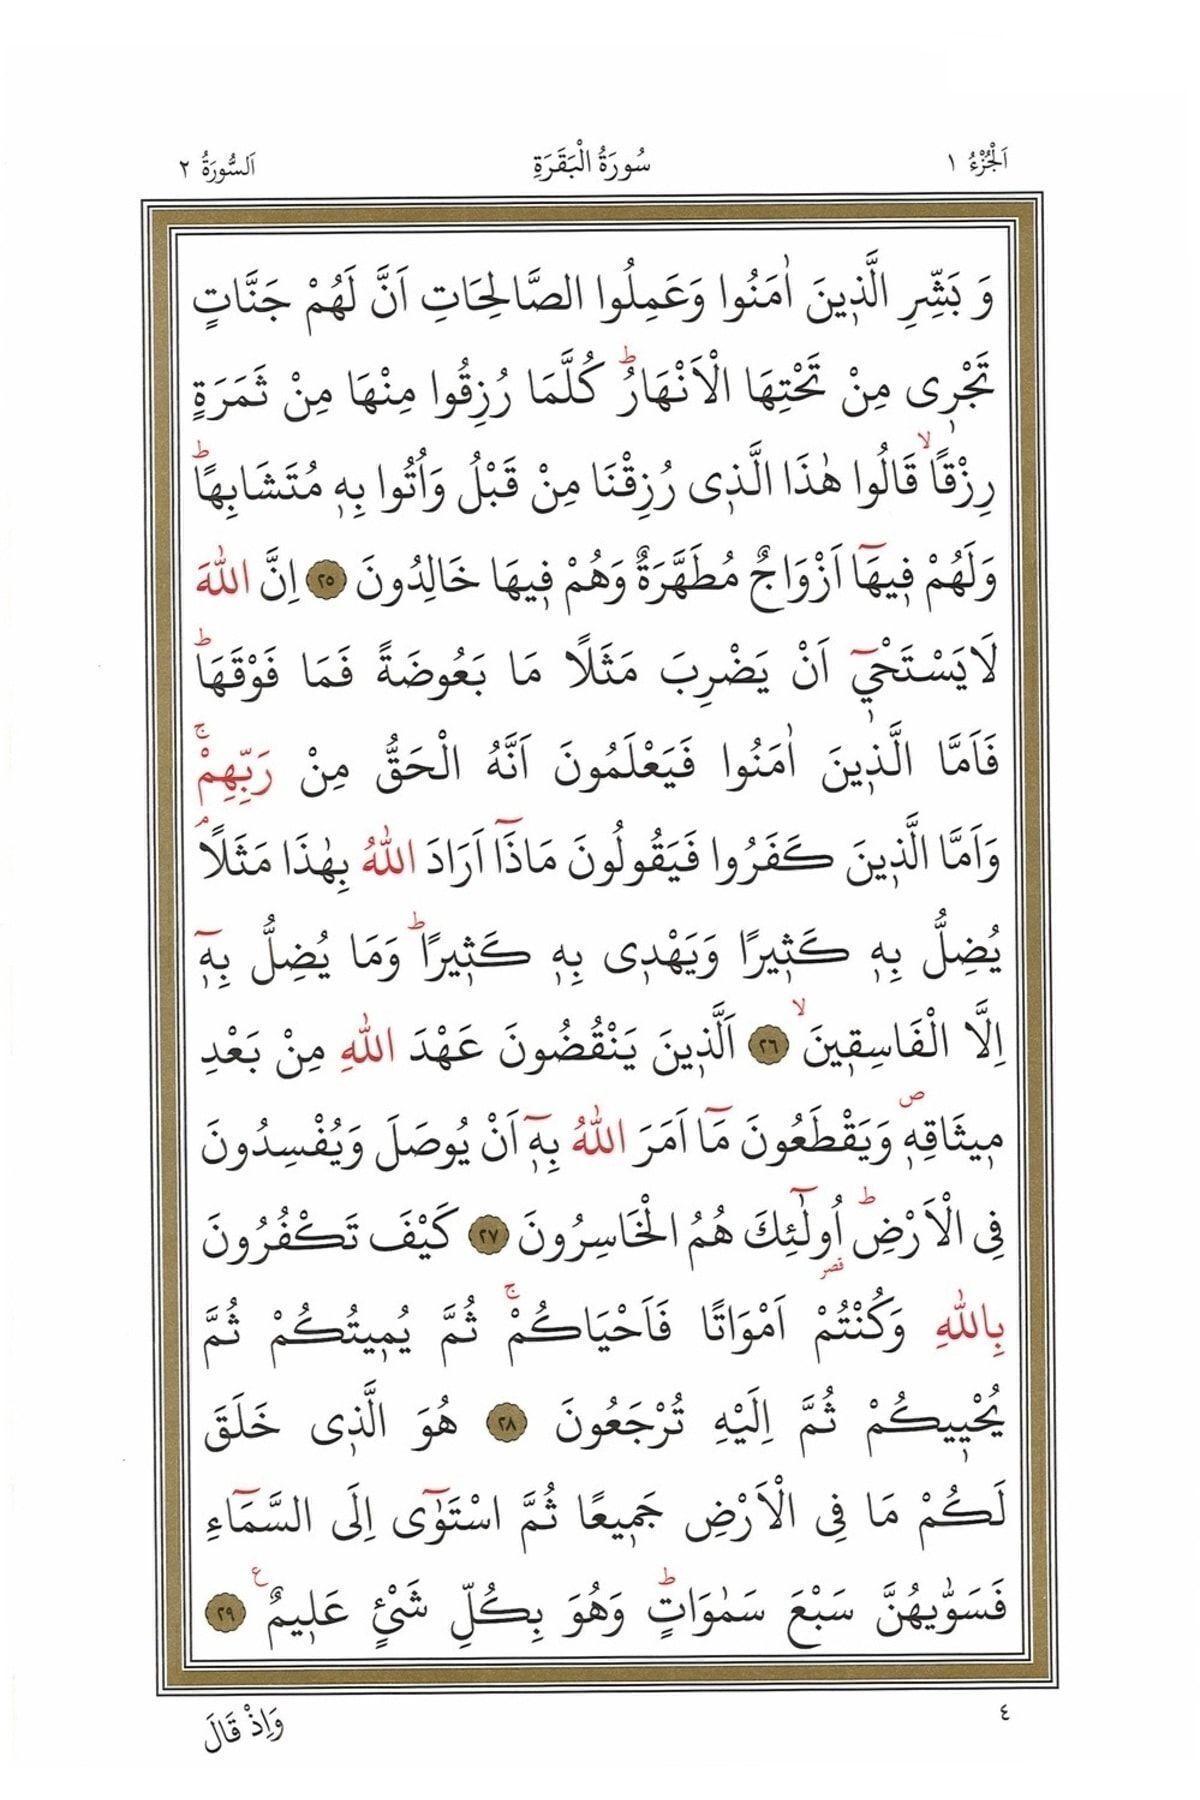 اَلْجُزْءُ ١
سُورَةُ الْبَقَرَةِ
اَلسُّورَةُ ٢
وَ بَشِّرِ الَّذ۪ينَ اٰمَنُوا وَعَمِلُوا الصَّالِحَاتِ اَنَّ لَهُمْ جَنَّاتٍ
تَجْر۪ى مِنْ تَحْتِهَا الْاَنْهَارُۜ كُلَّمَا رُزِقُوا مِنْهَا مِنْ ثَمَرَةٍ
رِزْقًاۙ قَالُوا هٰذَا الَّذ۪ى رُزِقْنَا مِنْ قَبْلُ وَاُتُوا بِه۪ مُتَشَابِهًاۜ
وَلَهُمْ ف۪يهَٓا اَزْوَاجٌ مُطَهَّرَةٌ وَهُمْ ف۪يهَا خَالِدُونَ ٢٥ اِنَّ اللّٰهَ
لَايَسْتَحْي۪ٓ اَنْ يَضْرِبَ مَثَلًا مَا بَعُوضَةً فَمَا فَوْقَهَاۜ
فَاَمَّا الَّذ۪ينَ اٰمَنُوا فَيَعْلَمُونَ اَنَّهُ الْحَقُّ مِنْ رَبِّهِمْۚ
وَاَمَّا الَّذ۪ينَ كَفَرُوا فَيَقُولُونَ مَاذَٓا اَرَادَ اللّٰهُ بِهٰذَا مَثَلًاۢ
يُضِلُّ بِه۪ كَث۪يرًا وَيَهْد۪ى بِه۪ كَث۪يرًاۜ وَمَا يُضِلُّ بِه۪ٓ
اِلَّا الْفَاسِق۪ينَۙ ٢٦ اَلَّذ۪ينَ يَنْقُضُونَ عَهْدَ اللّٰهِ مِنْ بَعْدِ
م۪يثَاقِه۪ۖ وَيَقْطَعُونَ مَٓا اَمَرَ اللّٰهُ بِه۪ٓ اَنْ يُوصَلَ وَيُفْسِدُونَ
فِى الْاَرْضِۜ اُو۬لٰٓئِكَ هُمُ الْخَاسِرُونَ ٢٧ كَيْفَ تَكْفُرُونَ
بِاللّٰهِ وَكُنْتُمْ اَمْوَاتًا فَاَحْيَاكُمْۚ ثُمَّ يُم۪يتُكُمْ ثُمَّ
يُحْي۪يكُمْ ثُمَّ اِلَيْهِ تُرْجَعُونَ ٢٨ هُوَ الَّذ۪ى خَلَقَ
لَكُمْ مَا فِى الْاَرْضِ جَم۪يعًا ثُمَّ اسْتَوٰٓى اِلَى السَّمَٓاءِ
فَسَوّٰيهُنَّ سَبْعَ سَمٰوَاتٍۜ وَهُوَ بِكُلِّ شَىْءٍ عَل۪يمٌ ٢٩
٤
وَاِذْ قَالَ